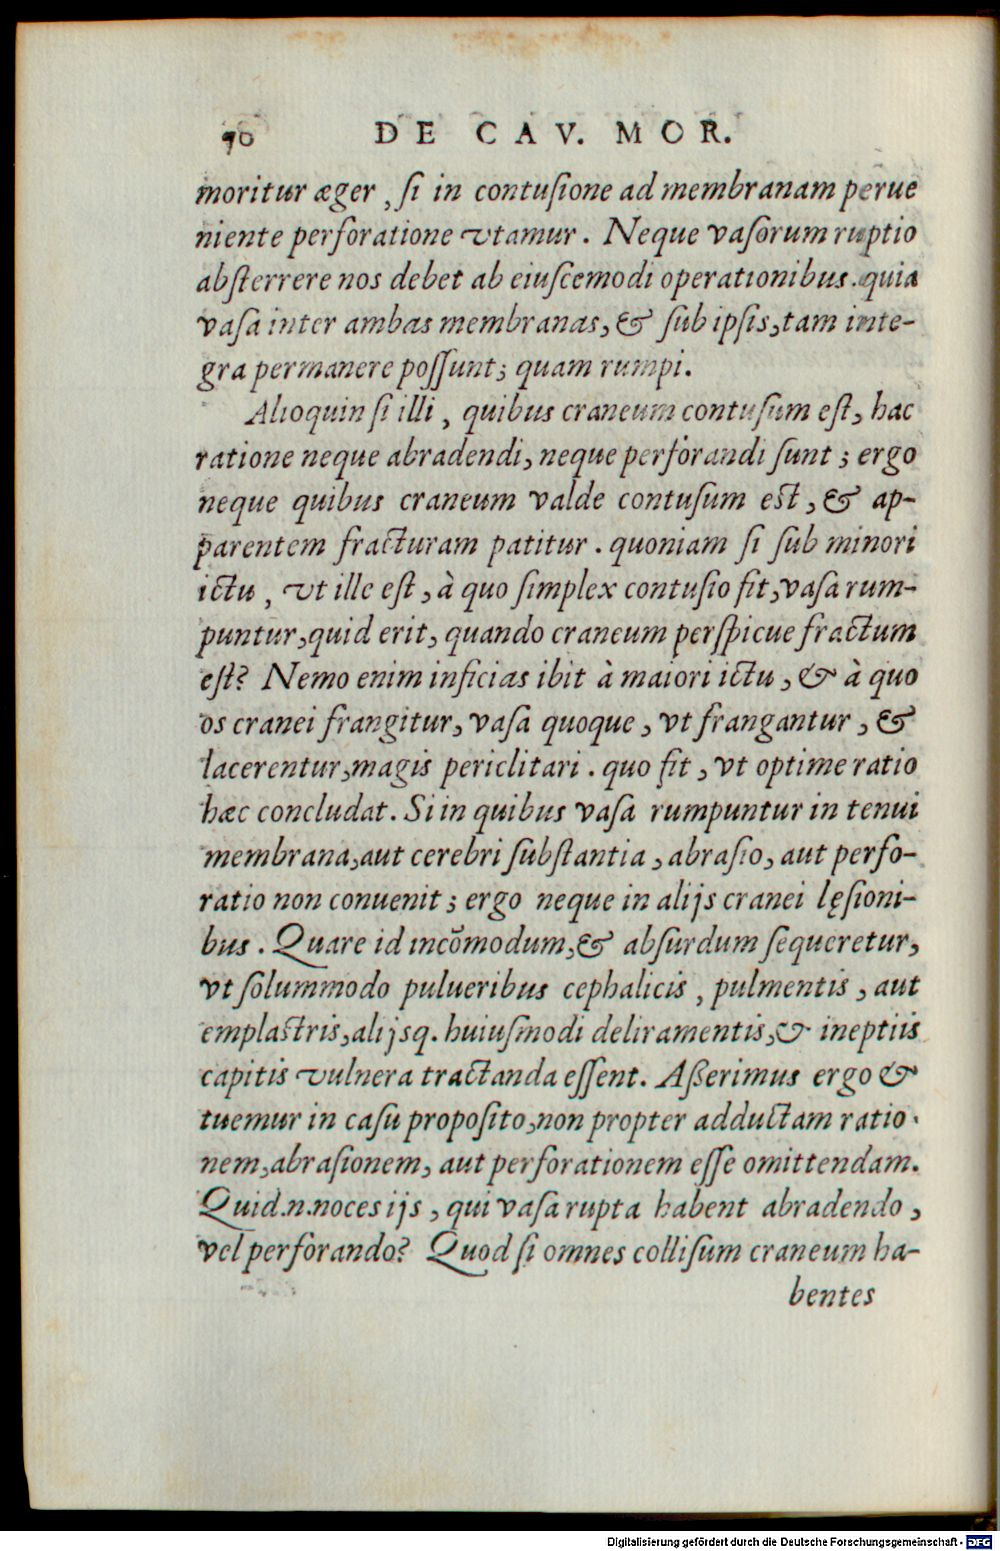 90 DE CAV. MOR.
moritur æger, ſi in contuſione ad membranam perue
niente perforatione vtamur. Neque vaſorum ruptio
abſterrere nos debet ab eiuſcemodi operationibus. quia
vaſa inter ambas membranas, & ſub ipſis, tam inte-
gra permanere poſſunt; quam rumpi.
Alioquin ſi illi, quibus craneum contuſum eſt, hac
ratione neque abradendi, neque perforandi ſunt; ergo
neque quibus craneum valde contuſum eſt, & ap-
parentem fracturam patitur. quoniam ſi ſub minori
ictu, vt ille eſt, à quo ſimplex contuſio fit, vaſa rum-
puntur, quid erit, quando craneum perſpicue fractum
eſt? Nemo enim inficias ibit à maiori ictu, & à quo
os cranei frangitur, vaſa quoque, vt frangantur, &
lacerentur, magis periclitari. quo fit, vt optime ratio
hæc concludat. Si in quibus vaſa rumpuntur in tenui
membrana, aut cerebri ſubſtantia, abraſio, aut perfo-
ratio non conuenit; ergo neque in alijs cranei lęſioni-
bus. Quare id incōmodum, & abſurdum ſequeretur,
vt ſolummodo pulueribus cephalicis, pulmentis, aut
emplaſtris, alijsq. huiuſmodi deliramentis, & ineptiis
capitis vulnera tractanda eſſent. Aßerimus ergo &
tuemur in caſu propoſito, non propter adductam ratio-
nem, abraſionem, aut perforationem eſſe omittendam.
Quid.n.noces ijs, qui vaſa rupta habent abradendo,
vel perforando? Quod ſi omnes colliſum craneum ha-
bentes
Digitalisierung gefördert durch die Deutsche Forschungsgemeinschaft - DFG